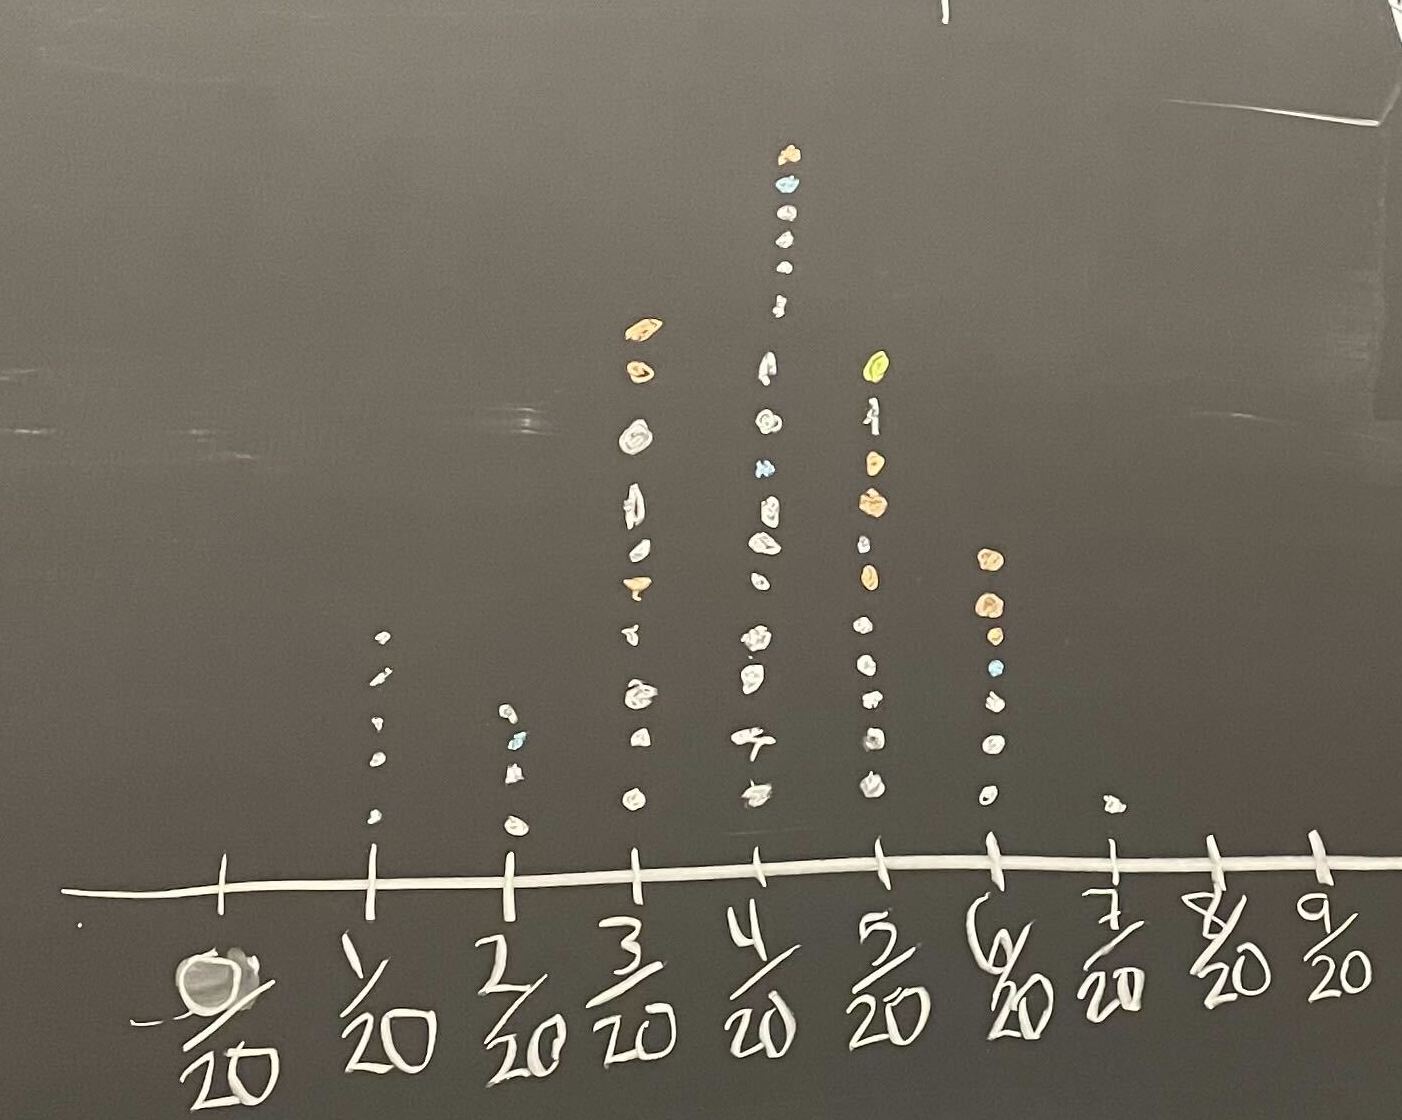 0/20 1/20 2/20 3/20 4/20 5/20 6/20 7/20 8/20 9/20